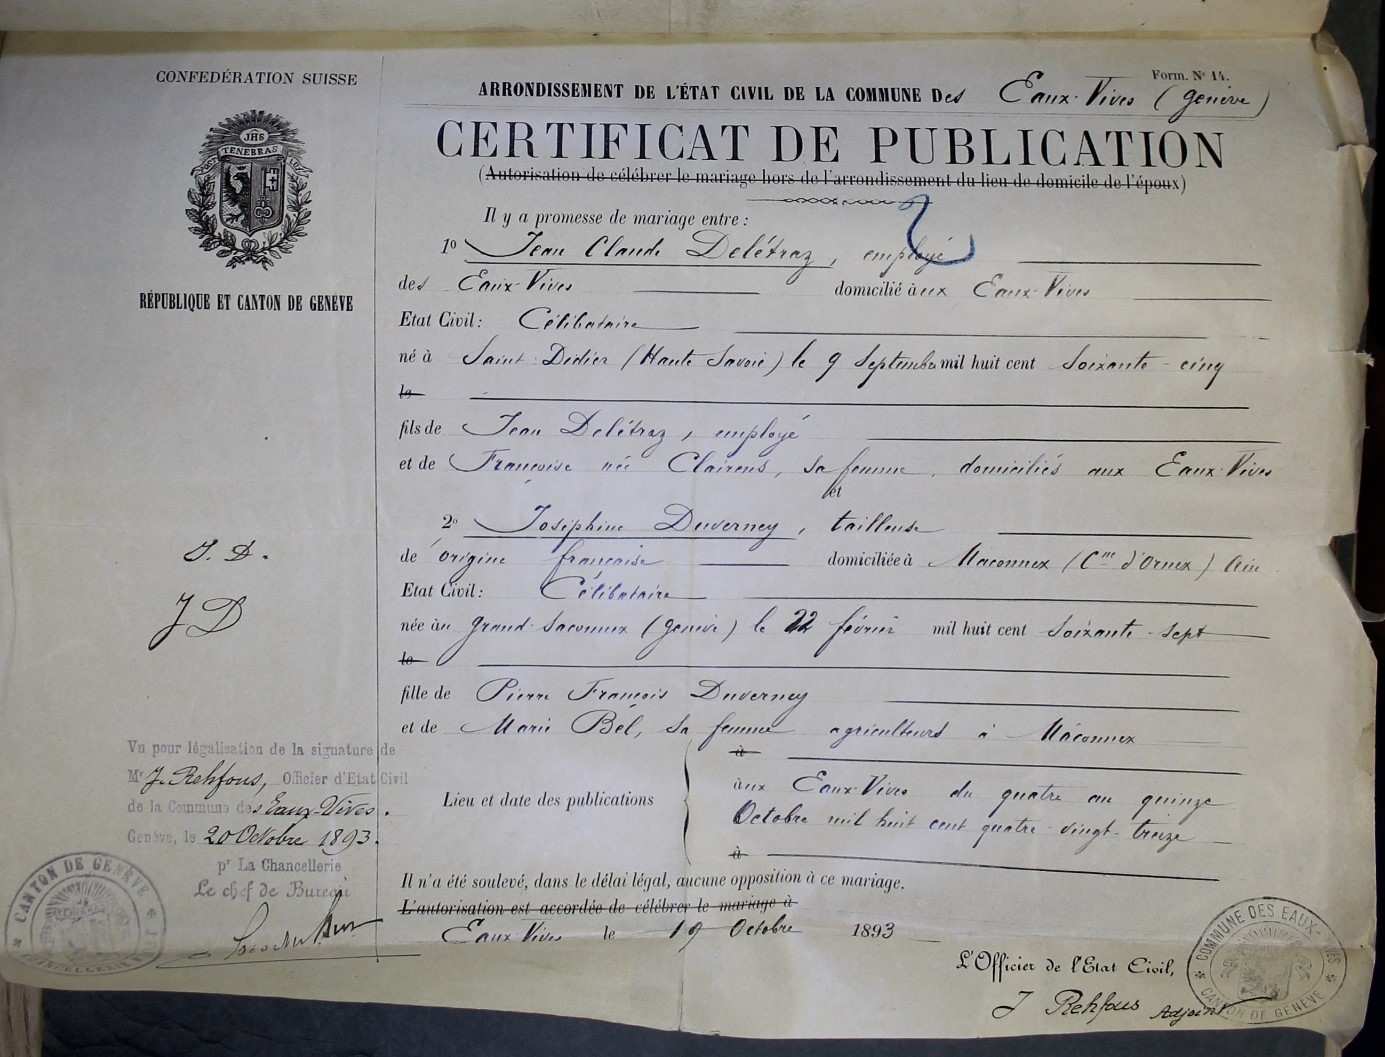 CONFEDÉRATION SUISSE
JHS
POST TENEBRAS LUX
RÉPUBLIQUE ET CANTON DE GENÈVE
Form. No 14.
ARRONDISSEMENT DE L'ÉTAT CIVIL DE LA COMMUNE Des Eaux-Vives (Genève)
CERTIFICAT DE PUBLICATION
(Autorisation de célébrer le mariage hors de l'arrondissement du lieu de domicile de l'époux)
Il y a promesse de mariage entre :
1o Jean Claude Delétraz, employé
des Eaux-Vives domicilié aux Eaux-Vives
Etat Civil : Célibataire
né à Saint-Didier (Haute Savoie) le 9 Septembre mil huit cent soixante-cinq
le
fils de Jean Delétraz, employé
et de Françoise née Clairens, sa femme, domiciliés aux Eaux-Vives
et
2o Joséphine Duverney, tailleuse
de origine française domiciliée à Maconnex (Cne d'Ornex) Ain
Etat Civil : Célibataire
née au Grand-Saconnex (Genève) le 22 février mil huit cent soixante-sept
le
fille de Pierre François Duverney
et de Marie Bél, sa femme agriculteurs à Maconnex
à
Lieu et date des publications
aux Eaux-Vives du quatre au quinze
Octobre mil huit cent quatre-vingt-treize
à
Il n'a été soulevé, dans le délai légal, aucune opposition à ce mariage.
L'autorisation est accordée de célébrer le mariage à
Eaux-Vives le 19 Octobre 1893
L'Officier de l'Etat Civil,
J Rehfous Adjoint
COMMUNE DES EAUX-VIVES
CANTON DE GENÈVE
J. D.
J D
Vu pour légalisation de la signature de
Mr J. Rehfous, Officier d'Etat Civil
de la Commune des Eaux-Vives.
Genève, le 20 Octobre 1893.
pr La Chancellerie
Le chef de Bureau
CANTON DE GENÈVE